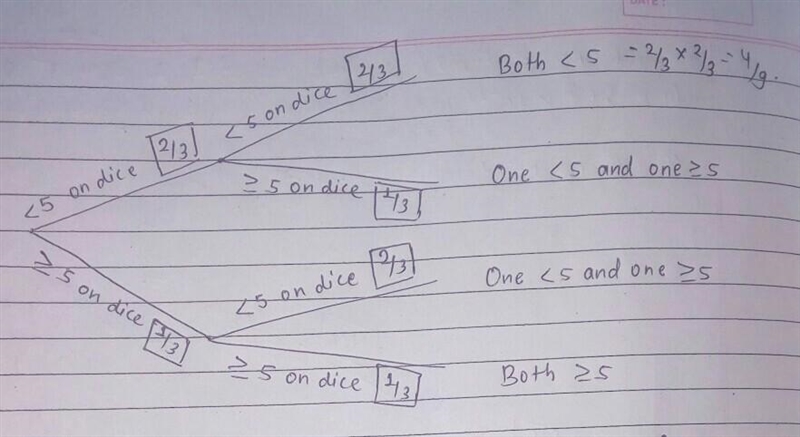 DATE:
<5 on dice 2/3
<5 on dice 2/3
Both < 5 = 2/3 × 2/3 = 4/9.
≥ 5 on dice 1/3
One < 5 and one ≥ 5
≥ 5 on dice 1/3
<5 on dice 2/3
One < 5 and one ≥ 5
≥ 5 on dice 1/3
Both ≥ 5